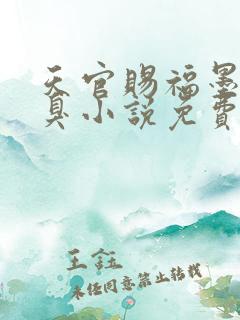 天官赐福墨
真小说免费
王鈺
未经同意禁止转载